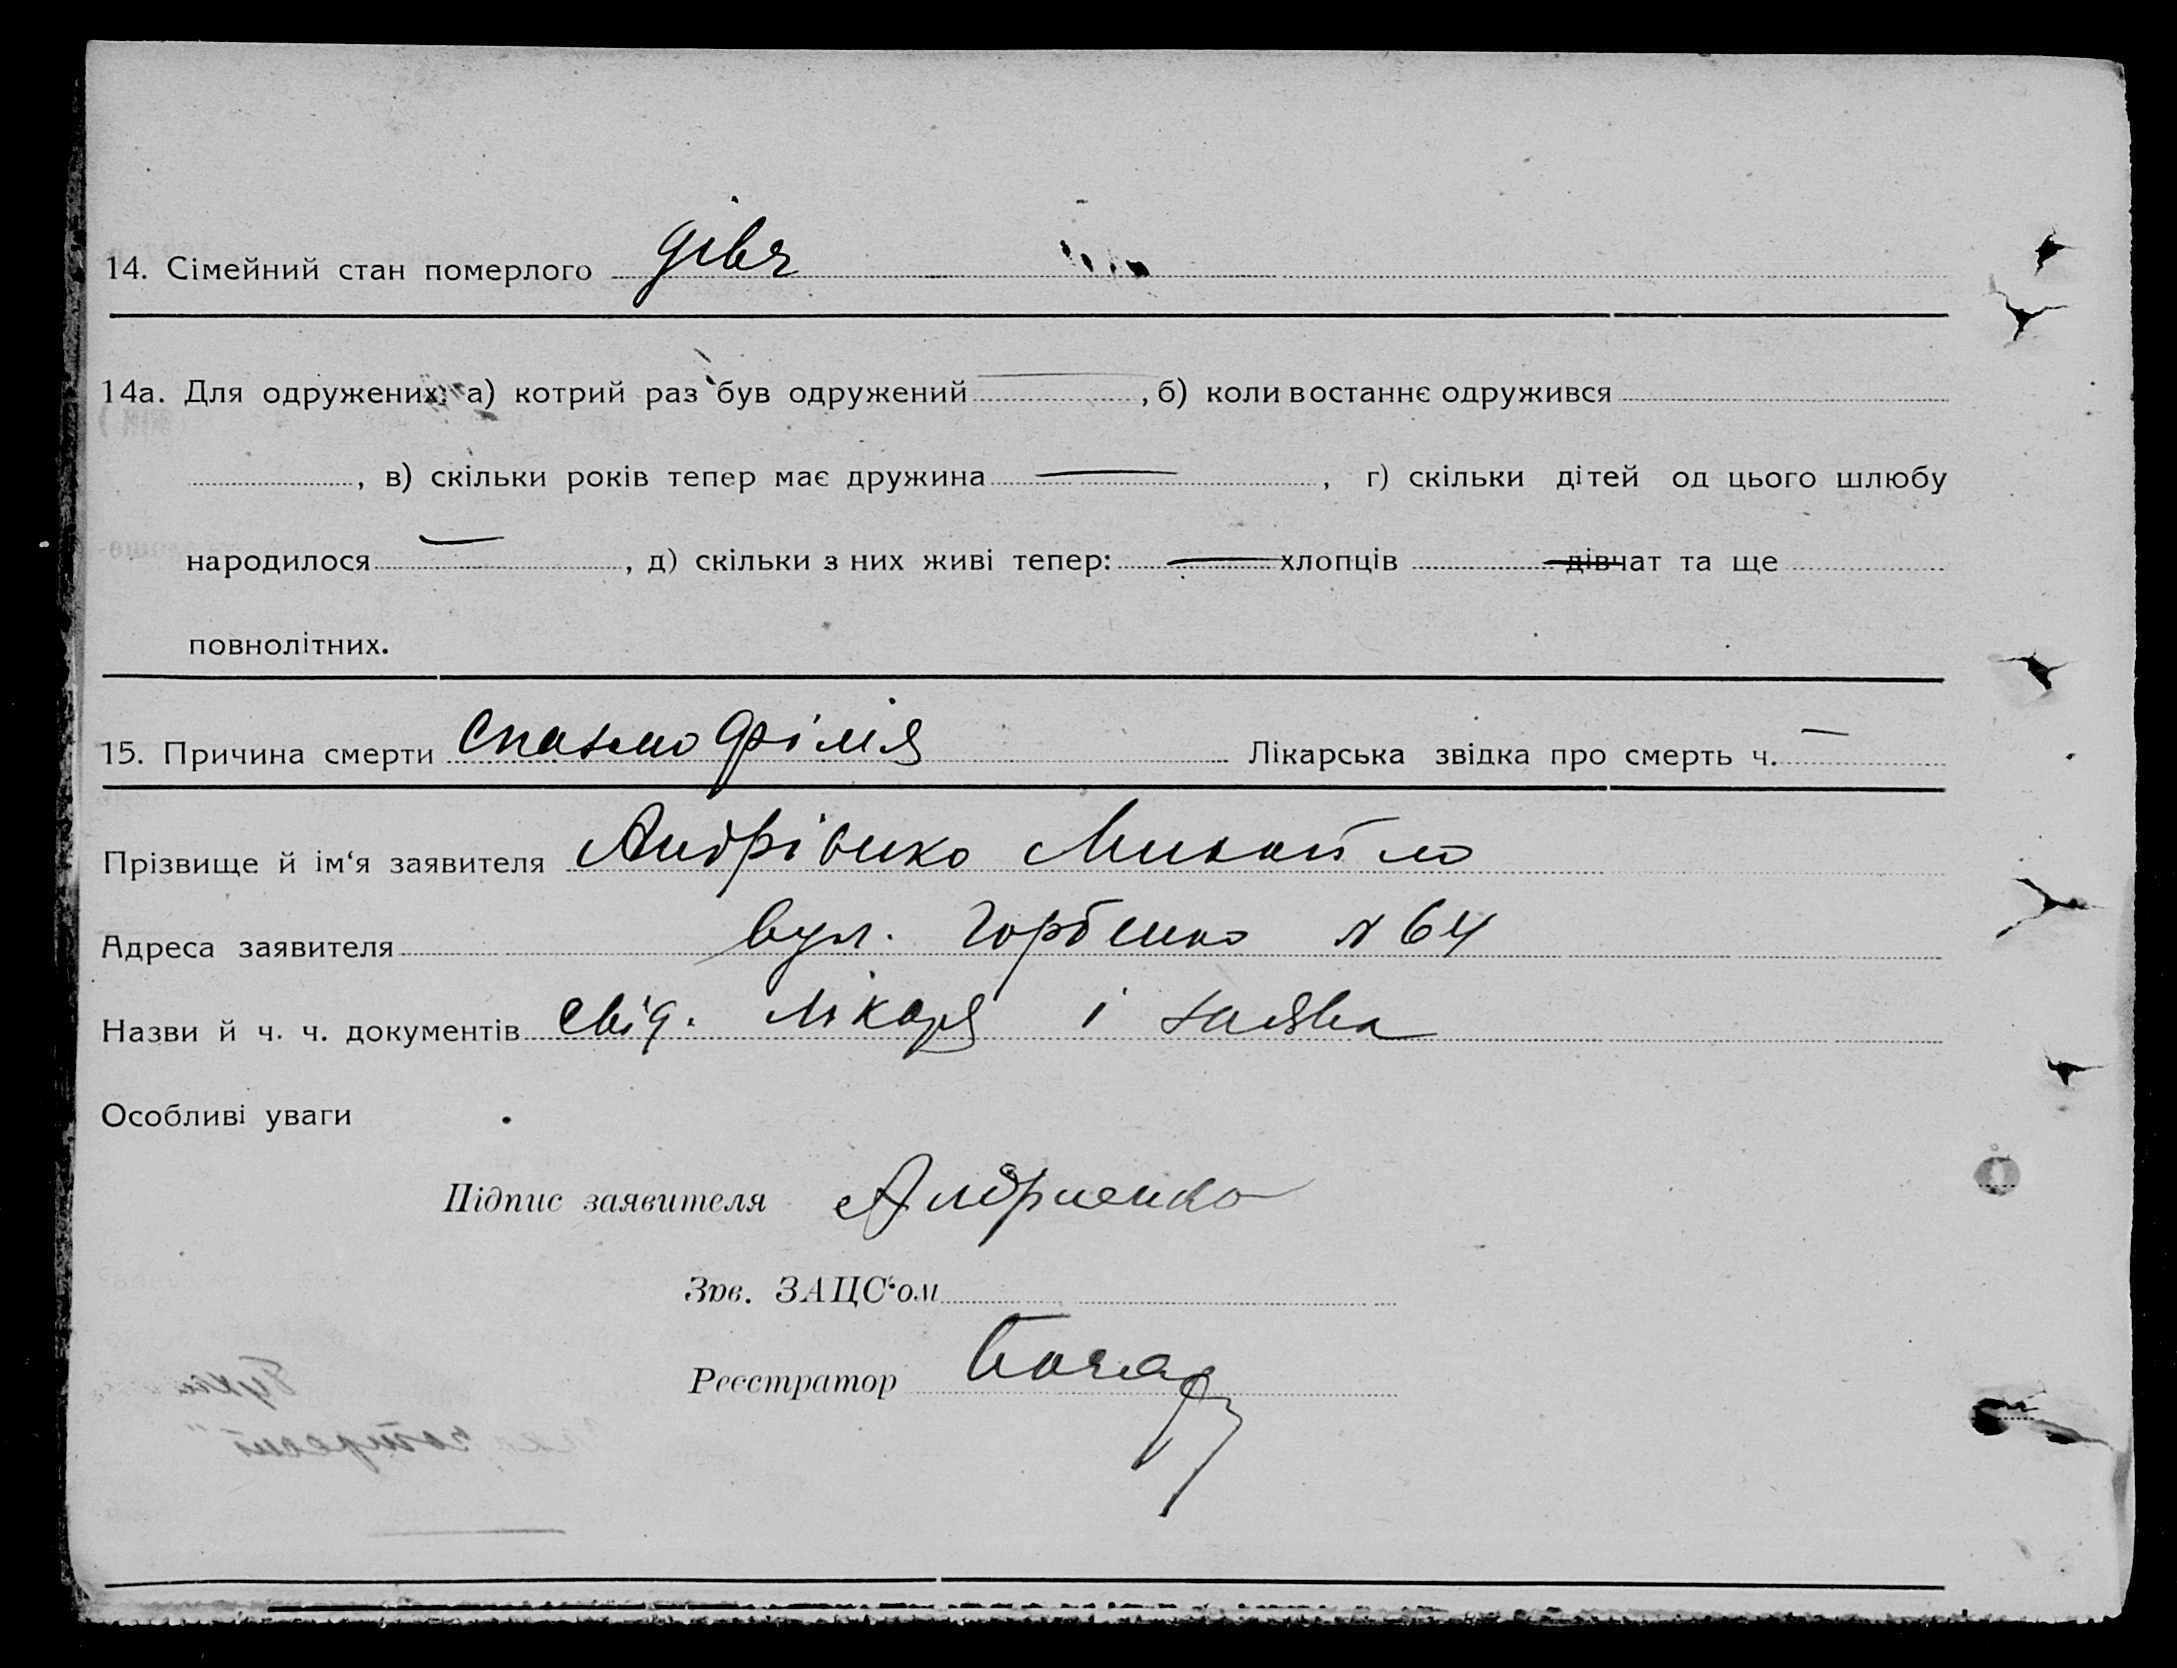 14. Сімейний стан померлого дівч
14а. Для одружених: а) котрий раз був одружений —, б) коли востаннє одружився
, в) скільки років тепер має дружина —, г) скільки дітей од цього шлюбу
народилося —, д) скільки з них живі тепер: — хлопців — дівчат та ще
повнолітних.
15. Причина смерти Спазмофілія Лікарська звідка про смерть ч. —
Прізвище й ім‘я заявителя Андрієнко Михайло
Адреса заявителя вул. Горбенко № 64
Назви й ч. ч. документів свід. лікаря і заява
Особливі уваги
Підпис заявителя Андриенко
Зав. ЗАЦС‘ом
Реєстратор